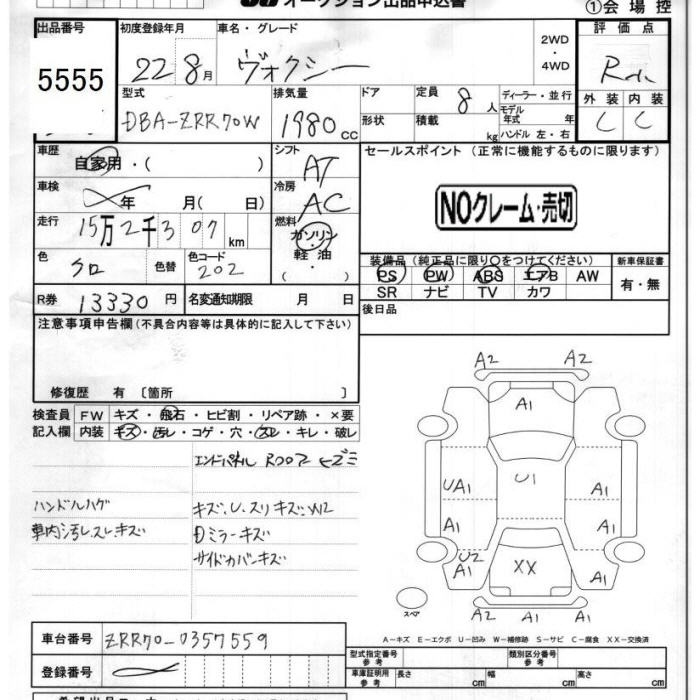 オークション出品申込書
①会場控
出品番号 初度登録年月 車名・グレード 2WD・4WD 評価点
5555 22 8月 ヴォクシー
外装 内装
C C
型式 排気量 ドア 定員 8人 ディーラー・並行
DBA-ZRR70W 1980cc 形状 積載 kg モデル年式 年
ハンドル 左・右
車歴 自家用・( ) シフト AT セールスポイント (正常に機能するものに限ります)
車検 年 月(日) 冷房 AC NOクレーム・売切
走行 15万2千307km 燃料 ガソリン・軽油・( )
色 クロ 色替 色コード 202
装備品(純正品に限り○をつけてください) 新車保証書
PS PW ABS エアB AW 有・無
SR ナビ TV カワ
R券 13330円 名変通知期限 月 日 後日品
注意事項申告欄(不具合内容等は具体的に記入して下さい)
修復歴 有 〔箇所 〕
検査員 FW キズ・飛石・ヒビ割・リペア跡・×要
記入欄 内装 キズ・汚レ・コゲ・穴・スレ・キレ・破レ
エンドパネル ヒズミ
ハンドルハゲ キズ、U、スリキズ
車内汚レスレキズ Dミラーキズ
サイドカバーキズ
A2 A2
A1
UA1 U1 A1
A1 A1
U2
A1 XX A1
スペア A2 A1 A1
A-キズ E-エクボ U-凹み W-補修跡 S-サビ C-腐食 XX-交換済
車台番号 ZRR70-0357559 型式指定番号 参考 類別区分番号 参考
登録番号 車庫証明用 参考 長さ cm 幅 cm 高さ cm